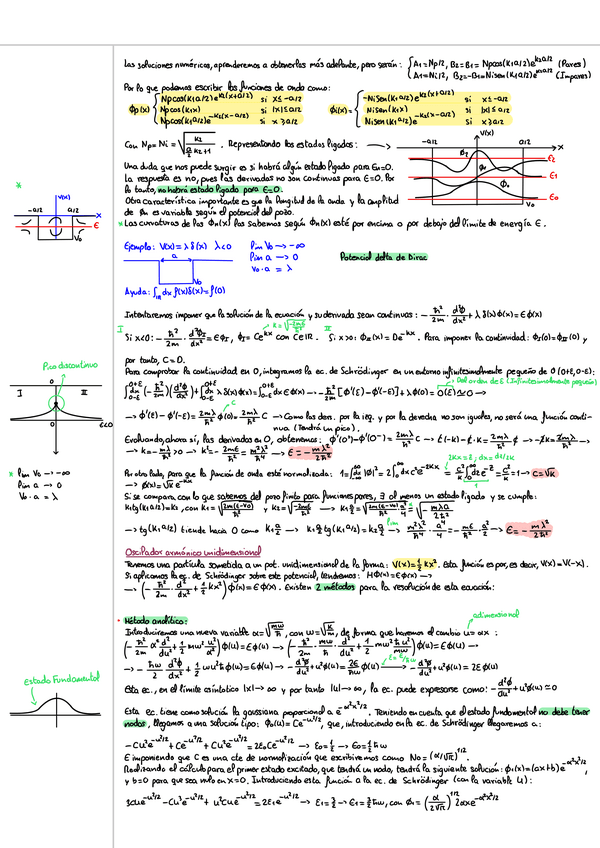 Las soluciones numéricas, aprenderemos a obtenerlas más adelante, pero serán: { A1=Np/2, B2=B1= Npcos(k1a/2)e^{k2a/2} (Pares)
A1=Ni/2, B2=-B1=Nisen(k1a/2)e^{k2a/2} (Impares)
Por lo que podemos escribir las funciones de onda como:
ϕp(x) { Npcos(k1a/2)e^{k2(x+a/2)} si x≤-a/2
Npcos(k1x) si |x|≤a/2
Npcos(k1a/2)e^{-k2(x-a/2)} si x≥a/2
ϕi(x)= { -Nisen(k1a/2)e^{k2(x+a/2)} si x≤-a/2
Nisen(k1x) si |x|≤a/2
Nisen(k1a/2)e^{-k2(x-a/2)} si x≥a/2
Con Np=Ni=√(k2/(a/2 k2+1)). Representando los estados ligados: →
V(x)
-a/2 a/2 x
ϕ2 ϕ1 ϕ0
E2
E1
E0
V0
Una duda que nos puede surgir es si habrá algún estado ligado para E=0.
La respuesta es no, pues las derivadas no son continuas para E=0. Por
lo tanto, no habrá estado ligado para E=0.
Otra característica importante es que la longitud de la onda y la amplitud
de ϕn es variable según el potencial del pozo.
* Las curvaturas de las ϕn(x) las sabemos según ϕn(x) esté por encima o por debajo del límite de energía E.
*
V(x)
-a/2 a/2
x
E
V0
Ejemplo: V(x)=λδ(x) λ<0
lim V0 → -∞
lim a → 0
V0·a = λ
Potencial delta de Dirac
a
V0
Ayuda: ∫_R dx f(x)δ(x)=f(0)
Intentaremos imponer que la solución de la ecuación y su derivada sean continuas: -ħ²/2m · d²ϕ/dx² + λδ(x)ϕ(x)=Eϕ(x)
I Si x<0: -ħ²/2m · d²ϕI/dx² = EϕI, ϕI= Ce^{kx} con C∈ℝ. II Si x>0: ϕII(x)= De^{-kx}. Para imponer la continuidad: ϕI(0)=ϕII(0) y
k=√(-2mE/ħ²)
por tanto, C=D.
Para comprobar la continuidad en 0, integramos la ec. de Schrödinger en un entorno infinitesimalmente pequeño de 0 (0+ε,0-ε):
Del orden de ε (Infinitesimalmente pequeño)
Pico discontinuo
I II
0
E<0
→ ϕ'(ε)-ϕ'(-ε)= 2mλ/ħ² ϕ(0)= 2mλ/ħ² C → Como las deri. por la izq. y por la derecha no son iguales, no será una función conti-
nua (Tendrá un pico).
→ k=-mλ/ħ² >0 → k²=-2mE/ħ²=m²λ²/ħ⁴ → E=-mλ²/2ħ²
* lim V0 → -∞
lim a → 0
V0·a = λ
2kx=z; dx=dz/2k
Por otro lado, para que la función de onda esté normalizada: 1=∫|ϕ|²=2∫dx c²e^{-2kx} = c²/k ∫dz e^{-z}=c²/k=1 → C=√k
→ ϕ(x)=√k e^{-kx}
Si se compara con lo que sabemos del pozo finito para funciones pares, ∃ al menos un estado ligado y se cumple:
→ tg(k1a/2) tiende hacia 0 como k1a/2
E=-mλ²/2ħ²
Oscilador armónico unidimensional
Tenemos una partícula sometida a un pot. unidimensional de la forma: V(x)=½kx². Esta función es par, es decir, V(x)=V(-x).
Si aplicamos la ec. de Schrödinger sobre este potencial, tendremos: Hϕ(x)=Eϕ(x) →
→ (-ħ²/2m · d²/dx² + ½kx²)ϕ(x)=Eϕ(x). Existen 2 métodos para la resolución de esta ecuación:
• Método analítico:
adimensional
Introduciremos una nueva variable α=√(mω/ħ), con ω=√(k/m), de forma que haremos el cambio u=αx:
(-ħ²/2m α² d²/du² + ½mω² u²/α²)ϕ(u)=Eϕ(u) → (-ħ²/2m · mω/ħ · d²/du² + ½mω² ħ/mω u²)ϕ(u)=Eϕ(u) →
→ -ħω/2 d²ϕ/du² + ½ωu²ħϕ(u)=Eϕ(u) → -d²ϕ/du²+u²ϕ(u)=2E/ħω ϕ(u) → -d²ϕ/du²+u²ϕ(u)=2Eϕ(u)
E=E/ħω
Esta ec., en el límite asintótico |x|→∞ y por tanto |u|→∞, la ec. puede expresarse como: -d²ϕ/du²+u²ϕ(u)≃0
Estado Fundamental
Esta ec. tiene como solución la gaussiana proporcional a e^{-α²x²/2}. Teniendo en cuenta que el estado fundamental no debe tener
nodos, llegamos a una solución tipo: ϕ0(u)=Ce^{-u²/2}, que, introduciendo en la ec. de Schrödinger llegaremos a:
-Cu²e^{-u²/2}+Ce^{-u²/2}+Cu²e^{-u²/2}=2E0Ce^{-u²/2} → E0=½ → E0=½ħω
E imponiendo que C es una cte de normalización que escribiremos como N0=(α/√π)^{1/2}
Realizando el cálculo para el primer estado excitado, que tendrá un nodo, tendrá la siguiente solución: ϕ1(x)=(ax+b)e^{-α²x²/2},
y b=0 para que sea nulo en x=0. Introduciendo esta función a la ec. de Schrödinger (con la variable u):
3cue^{-u²/2}-Cu³e^{-u²/2}+u²cue^{-u²/2}=2E1e^{-u²/2} → E1=3/2 → E1=3/2ħω, con ϕ1=(α/2√π)^{1/2} 2αxe^{-α²x²/2}